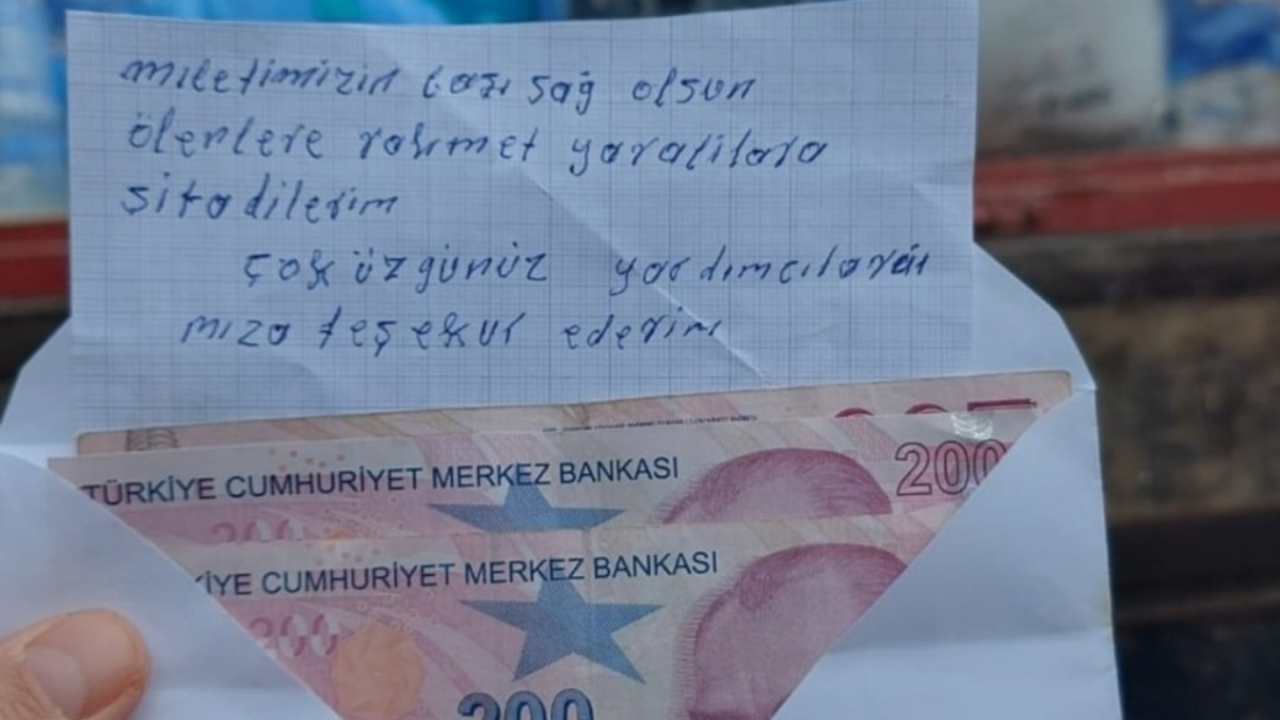 miletimizin başı sağ olsun
ölenlere rahmet yaralilara
şifa dilerim
çok üzgünüz yardımcılarım
mıza teşekur ederim
TÜRKİYE CUMHURİYET MERKEZ BANKASI
200
200
KİYE CUMHURİYET MERKEZ BANKASI
200
200